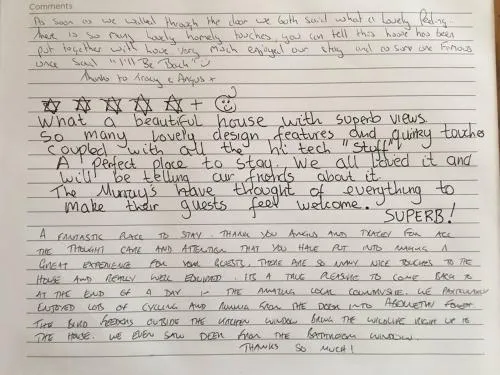 Comments
As soon as we walked through the door we both said what a lovely feeling.
There is so many lovely homely touches, you can tell this house has been
put together with love very much enjoyed our stay and as some one famous
once said "I'll Be Back"
Thanks to Tracy & Angus x
+
What a beautiful house with superb views.
So many lovely design features and quirky touches
coupled with all the hi tech "stuff"!
A perfect place to stay. We all loved it and
will be telling our friends about it.
The Murray's have thought of everything to
make their guests feel welcome.
SUPERB!
A FANTASTIC PLACE TO STAY. THANK YOU ANGUS AND TRACEY FOR ALL
THE THOUGHT CARE AND ATTENTION THAT YOU HAVE PUT INTO MAKING A
GREAT EXPERIENCE FOR YOUR GUESTS. THERE ARE SO MANY NICE TOUCHES TO THE
HOUSE AND REALLY WELL EQUIPPED. ITS A TRUE PLEASURE TO COME BACK TO
AT THE END OF A DAY IN THE AMAZING LOCAL COUNTRYSIDE. WE PARTICULARLY
ENJOYED LOTS OF CYCLING AND RUNNING FROM THE DOOR INTO FOREST.
THE BIRD FEEDERS OUTSIDE THE KITCHEN WINDOW BRING THE WILDLIFE RIGHT UP TO
THE HOUSE. WE EVEN SAW DEER FROM THE BATHROOM WINDOW.
THANKS SO MUCH!